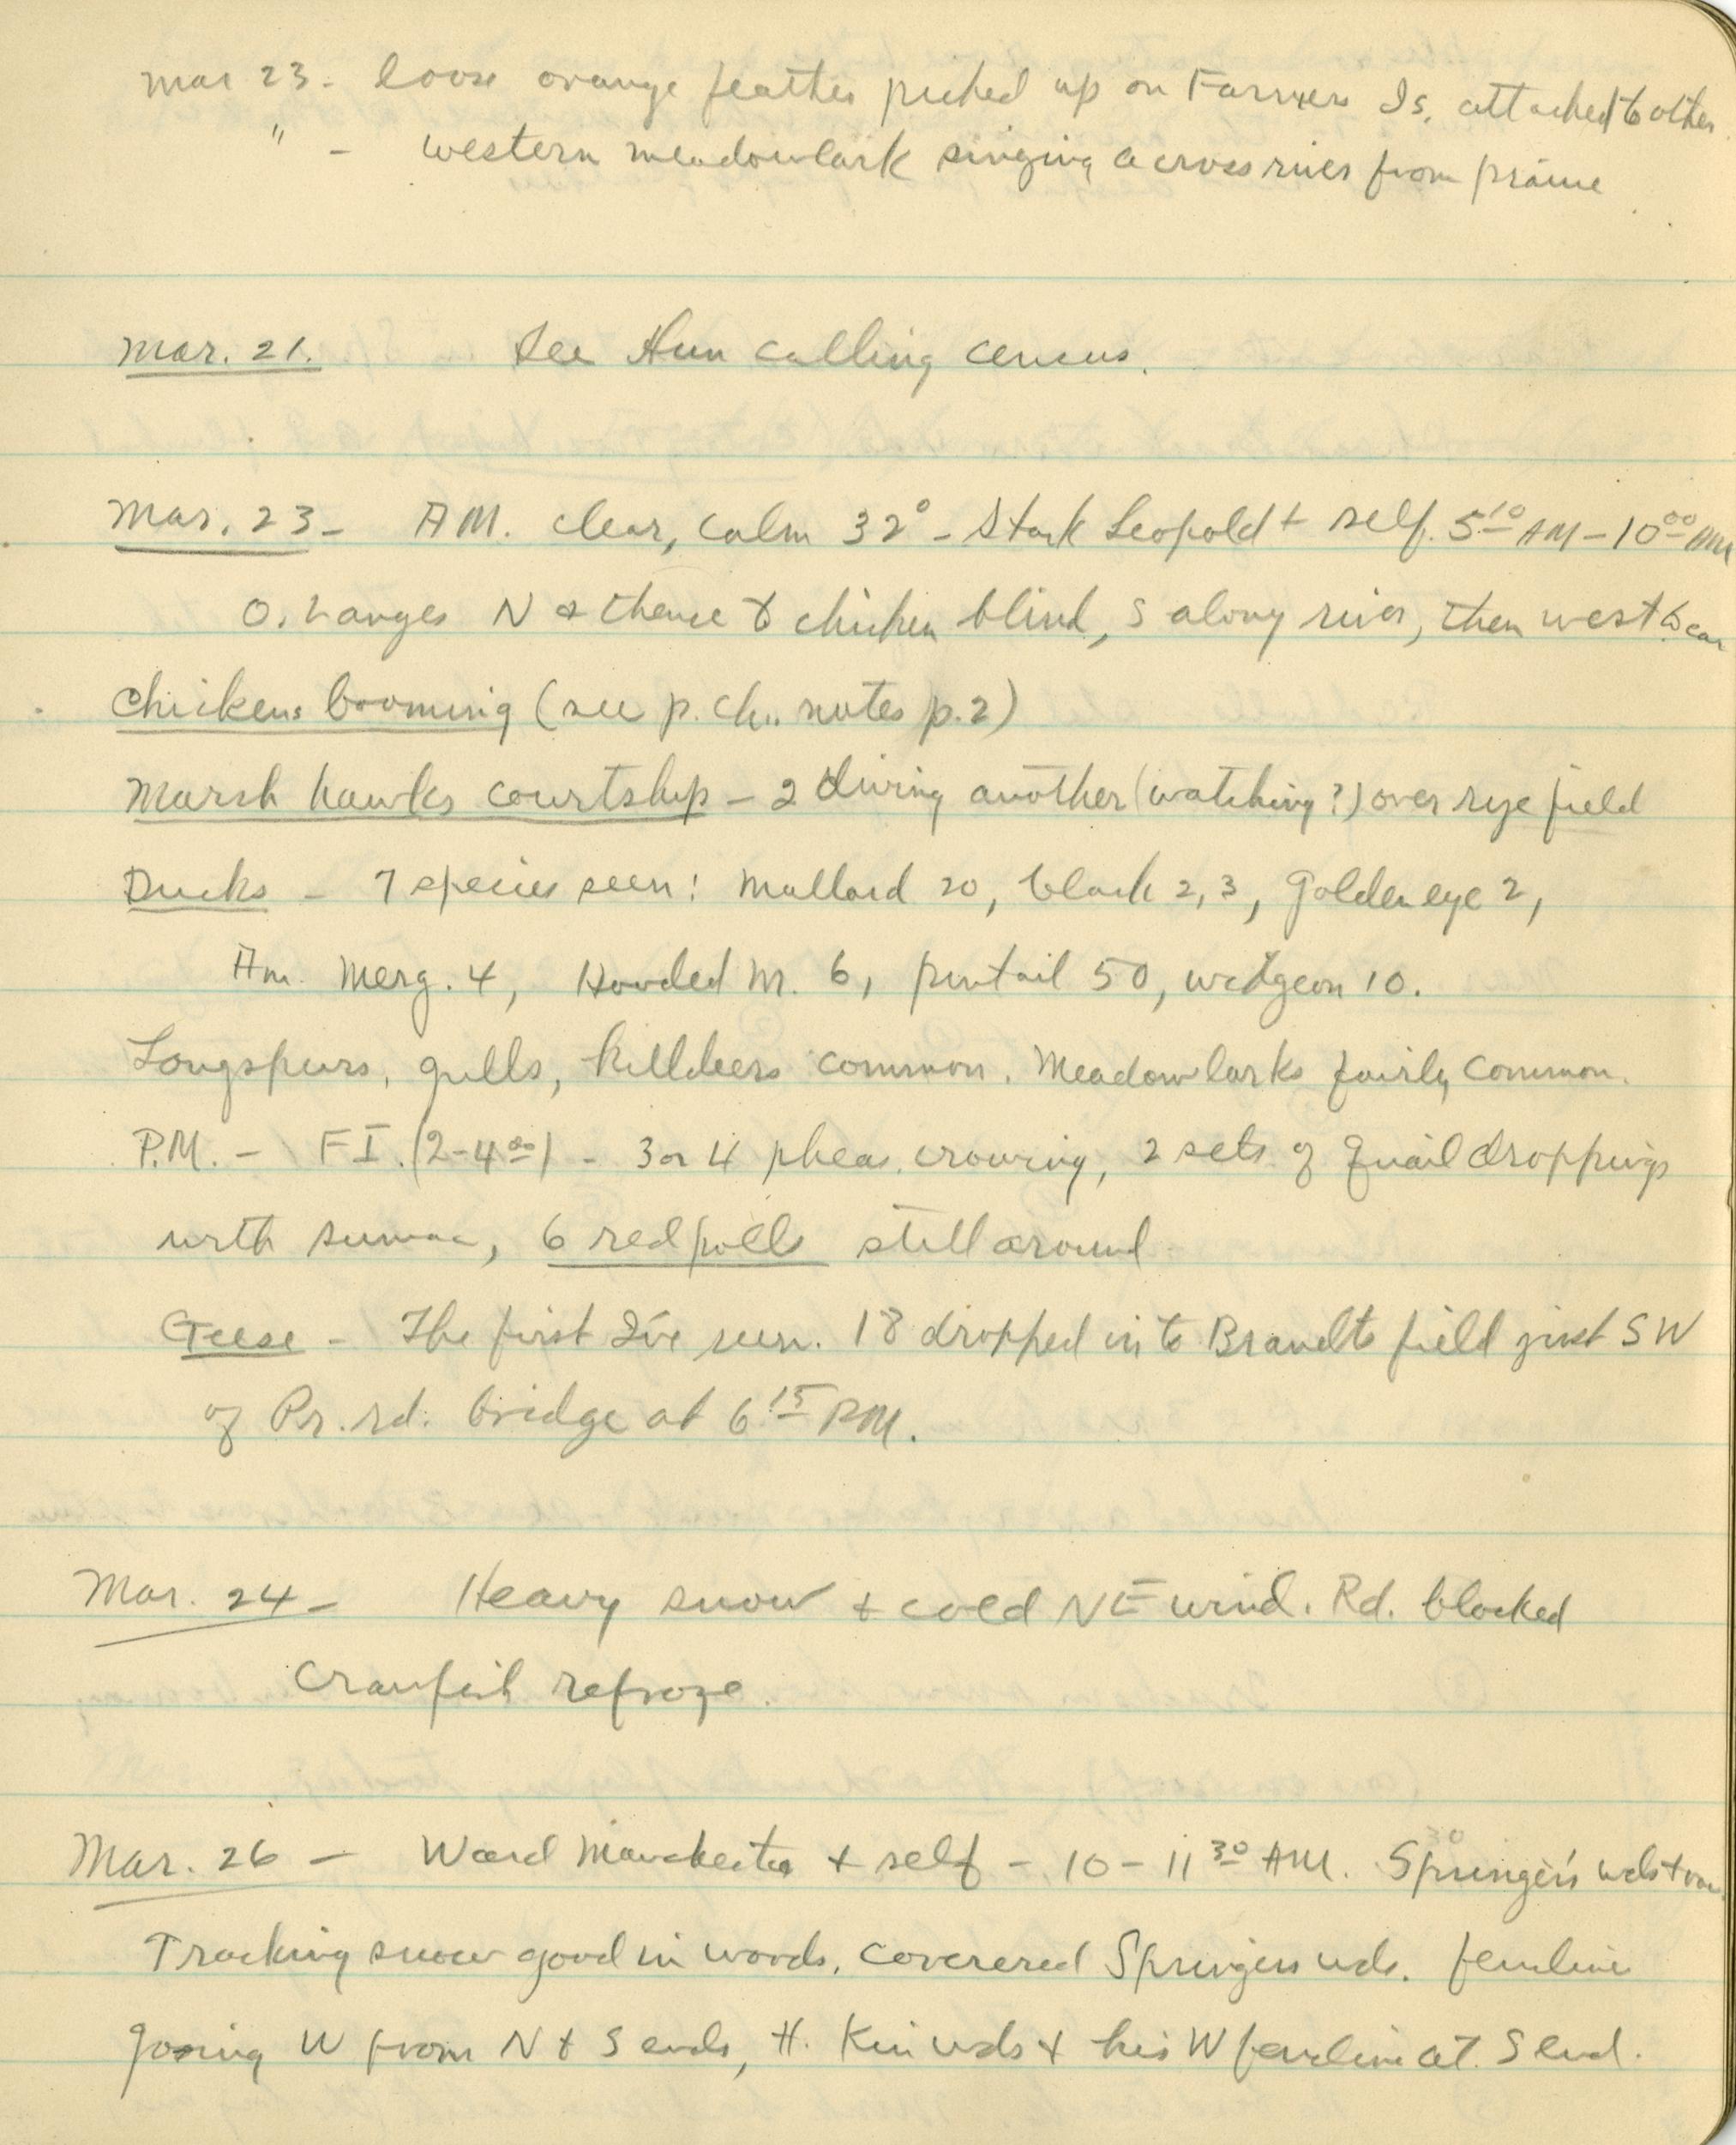 Mar 23 - loose orange feather picked up on Farmers Is. attached to other
" - western meadowlark singing across river from prairie
Mar. 21. See Hun calling census.
Mar. 23 - AM. clear, calm 32° - Stark Leopold + self. 5 10 AM - 10 00 AM
O. Langes N & thence to chicken blind, S along river, then west to car
Chickens booming (see p. ch. notes p. 2)
Marsh hawks courtship - 2 diving another (watching?) over rye field
Ducks - 7 species seen: Mallard 20, black 2, 3, Golden eye 2,
Am. Merg. 4, Hooded M. 6, pintail 50, widgeon 10.
Longspurs, gulls, killdeers common. Meadowlarks fairly common.
P.M. - F I. (2-4 00) - 3 or 4 pheas. crowing, 2 sets of quail droppings
with sumac, 6 redpolls still around
Geese - The first I've seen. 18 dropped in to Brandts field just SW
of Pr. rd. bridge at 6 15 PM.
Mar. 24 - Heavy snow + cold NE wind. Rd. blocked
Crawfish refroze.
Mar. 26 - Ward Manchester + self - 10 - 11 30 AM. Springer's wds +
Tracking snow good in woods. coverered Springers wds. fenceline
going W from N & S ends, H. wds + his W fenceline at S end.